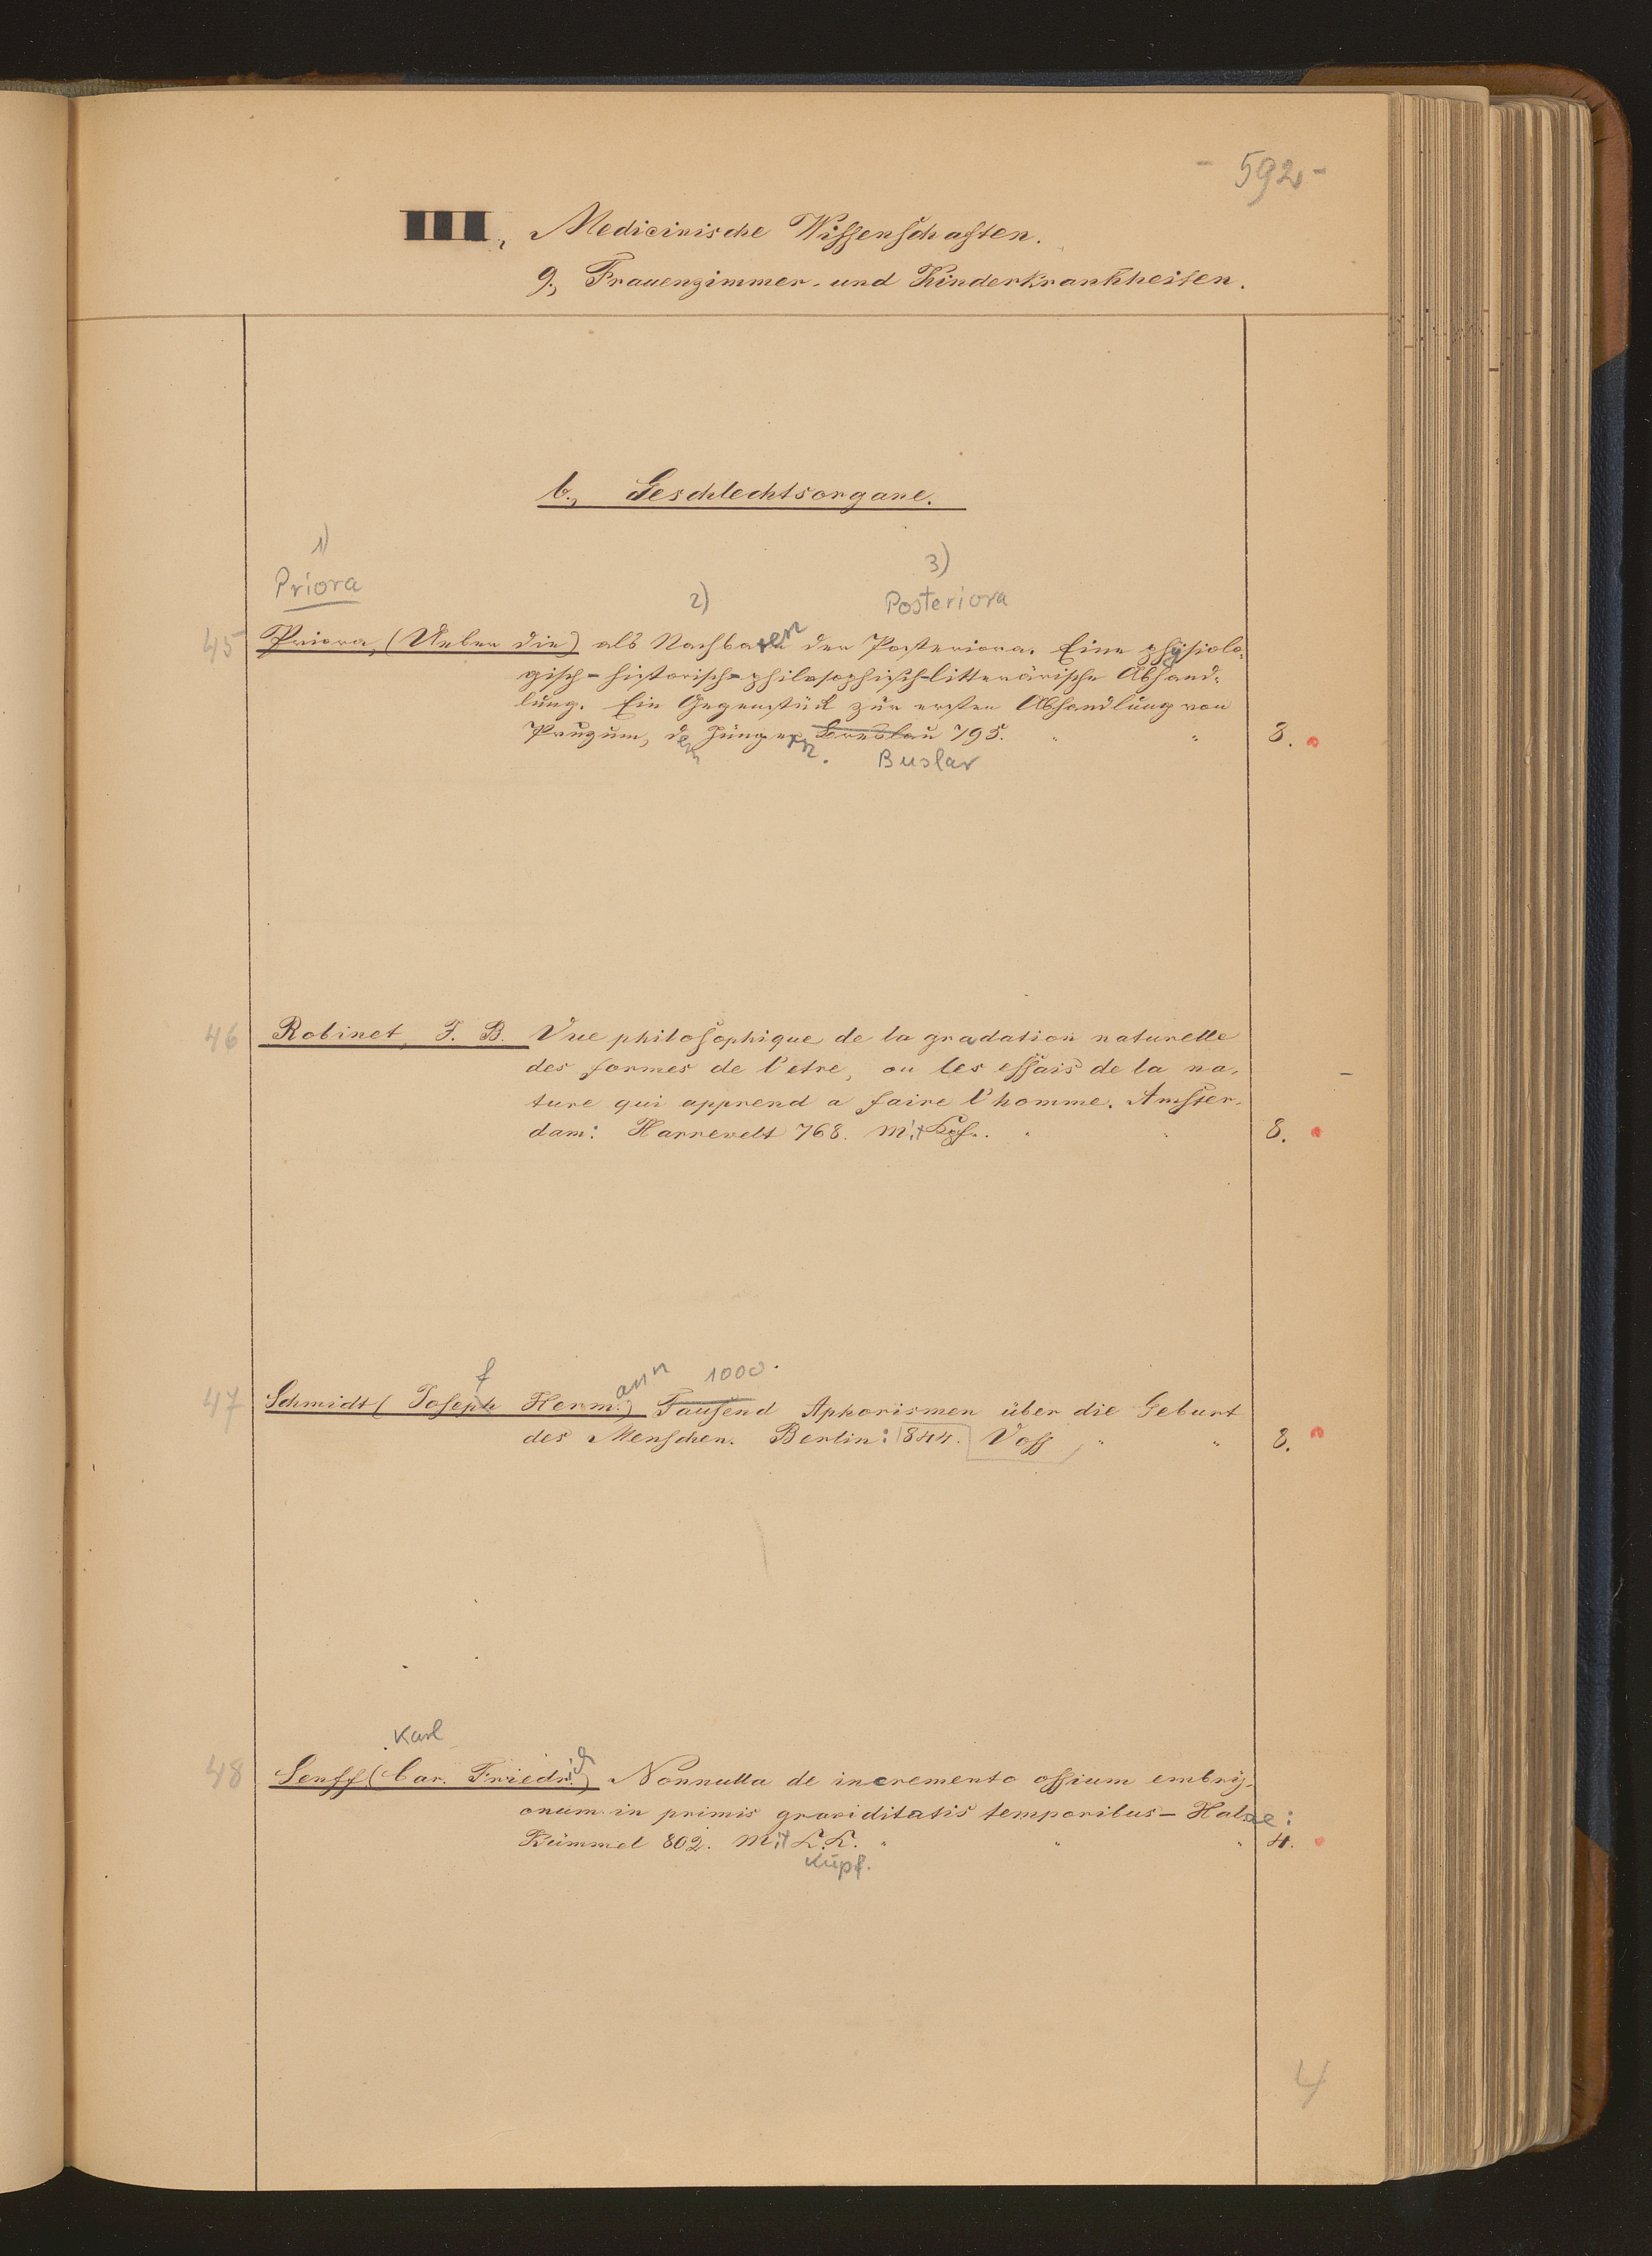 - 592 -
III, Medicinische Wissenschaften.
9., Frauenzimmer- und Kinderkrankheiten.
b., Geschlechtsorgane.
1)
3)
Priora
2)
Posteriora
45 Priora, (Ueber die) als Nachbaren der Posteriora. Eine physiolo-
gisch-historisch-philosophisch-litterärische Abhand-
lung. Ein Gegenstück zur ersten Abhandlung von
Prugum, dem Jüngern. Breslau 795. " " 8.
Buslar
46 Robinet, J. B. Vue philosophique de la gradation naturelle
des formes de l'etre, ou les essais de la na-
ture qui apprend a faire l'homme. Amster-
dam: Harrevelt 768. Mit Kpf. " " 8.
f ann 1000.
47 Schmidt (Joseph Herm.) Tausend Aphorismen über die Geburt
des Menschen. Berlin: 1844. Voss " " 8.
Karl
48 Senff (Car. Friedrich) Nonnulla de incremento ossium embry-
onum in primis graviditatis temporibus - Halae:
Kümmel 802. Mit K.K. " " " 4.
Kupf.
4